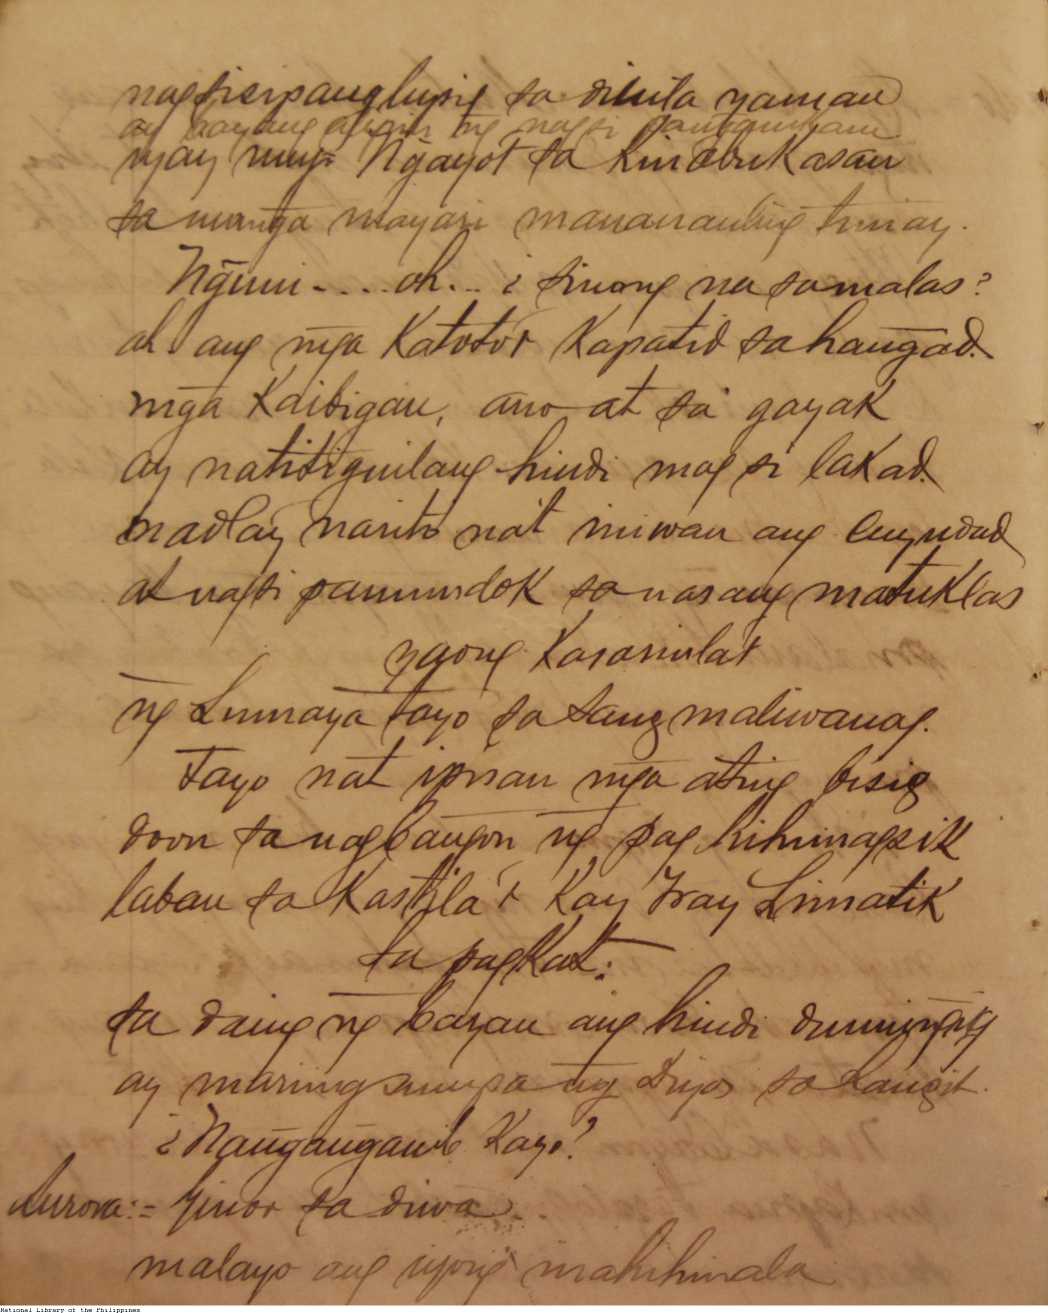 sa dilila yaman
ay
Ngayo't sa kinabukasan
sa munga mayari mananauling tunay.
Nguni.... oh... ¿ sinong na sa malas?
ah. ang mga Katoto't Kapatid sa hangad.
mga Kaibigan, ano at sa gayak
ay natitiguilang hindi mag si lakad.
madlay narito na't iniwan ang
at nagsi pamundok sa nasang matuklas
yaong Kasarinlat
ng Lumaya tayo sa Sang maliwanag.
Tayo na't ipisan mga ating bisig
doon sa nagbangon ng pag hihimagsik
laban sa Kastila't Kay Fray Limatik
sa pagkat:
sa daing ng bayan ang hindi duminig
ay maring sumpa ng Diyos sa Langit.
¿Nanganganib Kayo?
Aurora:= Ginoo sa diwa
malayo ang inyong mahihinala
National Library of the Philippines